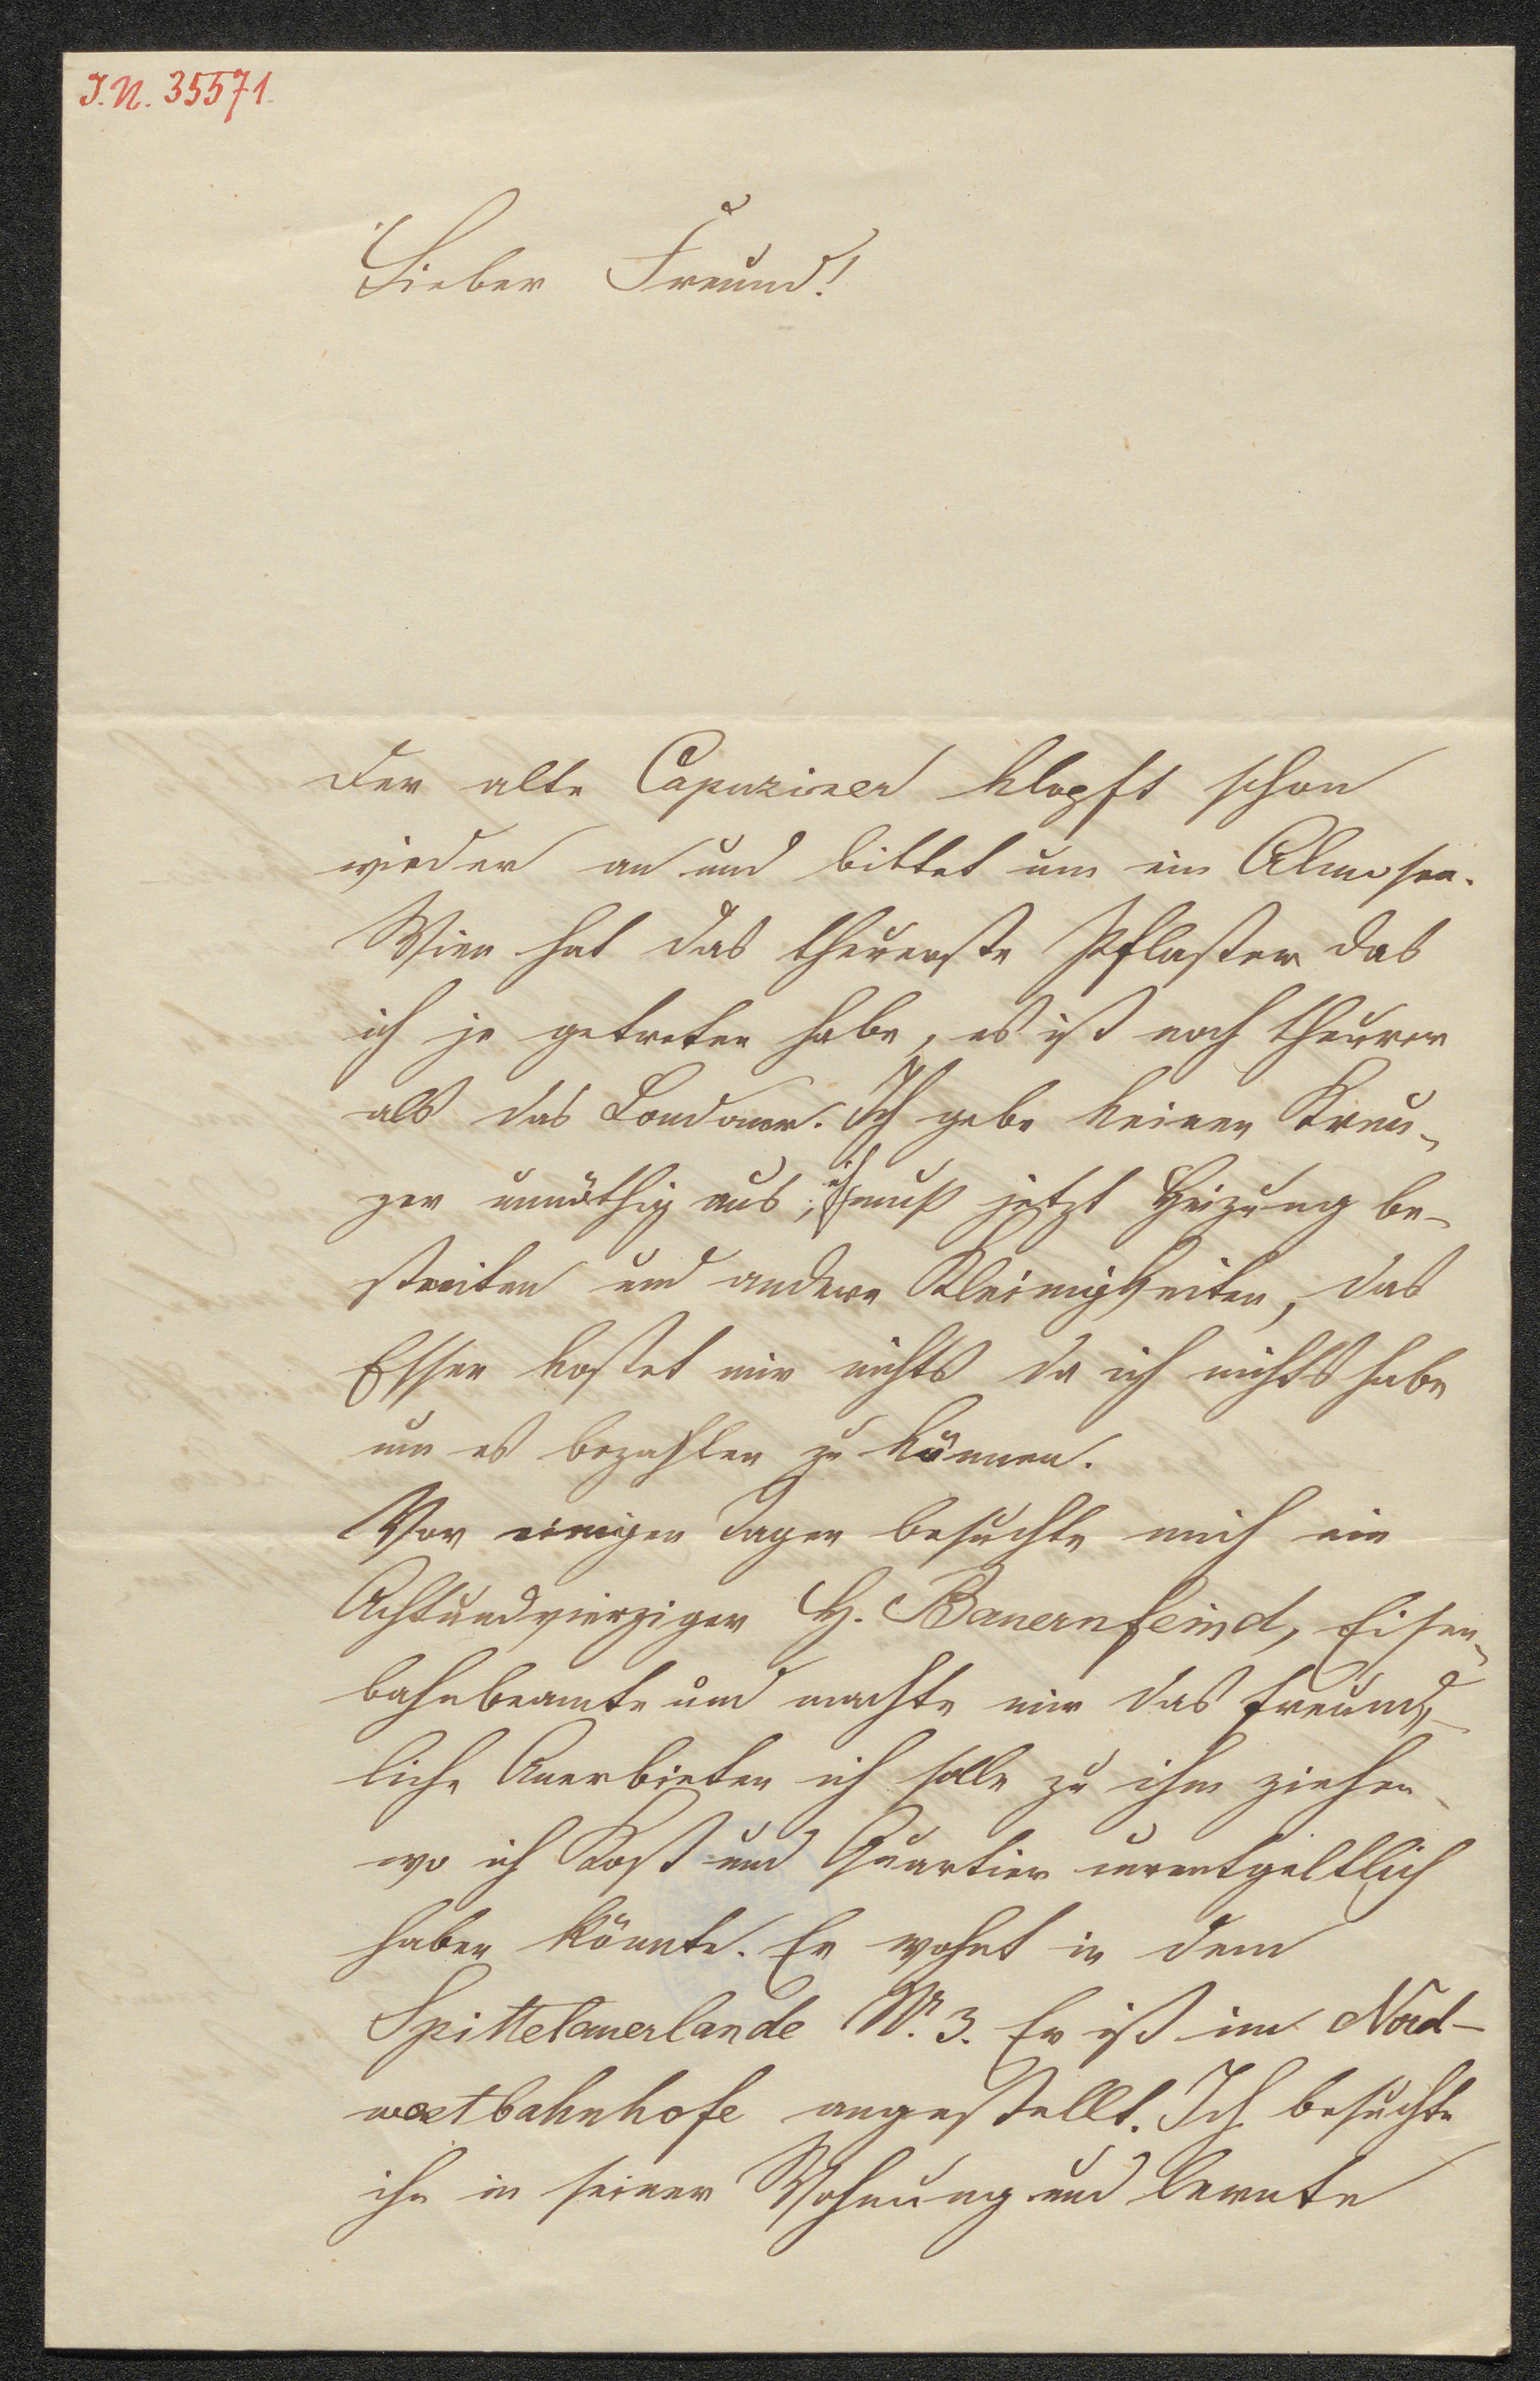 I.N. 35571.
Lieber Freund!
Der alte Capuziner klopft schon
wieder an und bittet um ein Almosen.
Wien hat das theuerste Pflaster das
ich je getreten habe, es ist noch theurer
als das Londoner. Ich gebe keinen Kreu-
zer unnöthig aus, ich muß jetzt Heizung be-
streiten und andere Kleinigkeiten, das
Essen kostet mir nichts da ich nichts habe
um es bezahlen zu können.
Vor einigen Tagen besuchte mich ein
Achtundvierziger H. Bauernfeind, Eisen-
bahnbeamte und machte mir das freund-
liche Anerbieten ich solle zu ihm ziehen
wo ich Kost und Quartier unentgeltlich
haben könnte. Er wohnt in dem
Spittelauerlande Nr. 3. Er ist im Nord-
westbahnhofe angestellt. Ich besuchte
ihn in seiner Wohnung und lernte